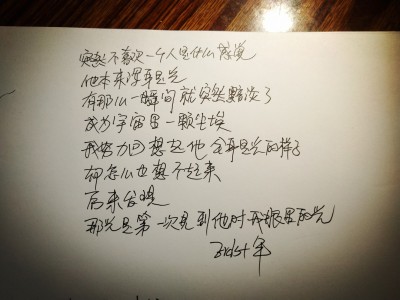 突然不喜欢一个人是什么感觉
他本来浑身是光
有那么一瞬间就突然黯淡了
成为宇宙里一颗尘埃
我努力回想起他全身是光的样子
却怎么也想不起来
后来发现
那光是第一次见到他时我眼里的光